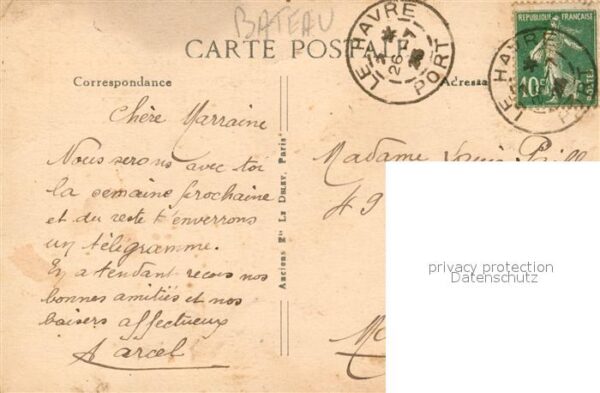 BATEAU
CARTE POSTALE
LE HAVRE
26 - 7
PORT
REPUBLIQUE FRANÇAISE
10c
POSTE
LE HAVRE
PORT
Correspondance
Adresse
Chère Marraine
Nous serons avec toi
la semaine prochaine
et du reste t'enverrons
un télégramme.
En atendant reçois nos
bonnes amitiés et nos
baisers affectueux
Marcel
Anciens Ets Le Deley, Paris
Madame Louis
49
privacy protection
Datenschutz